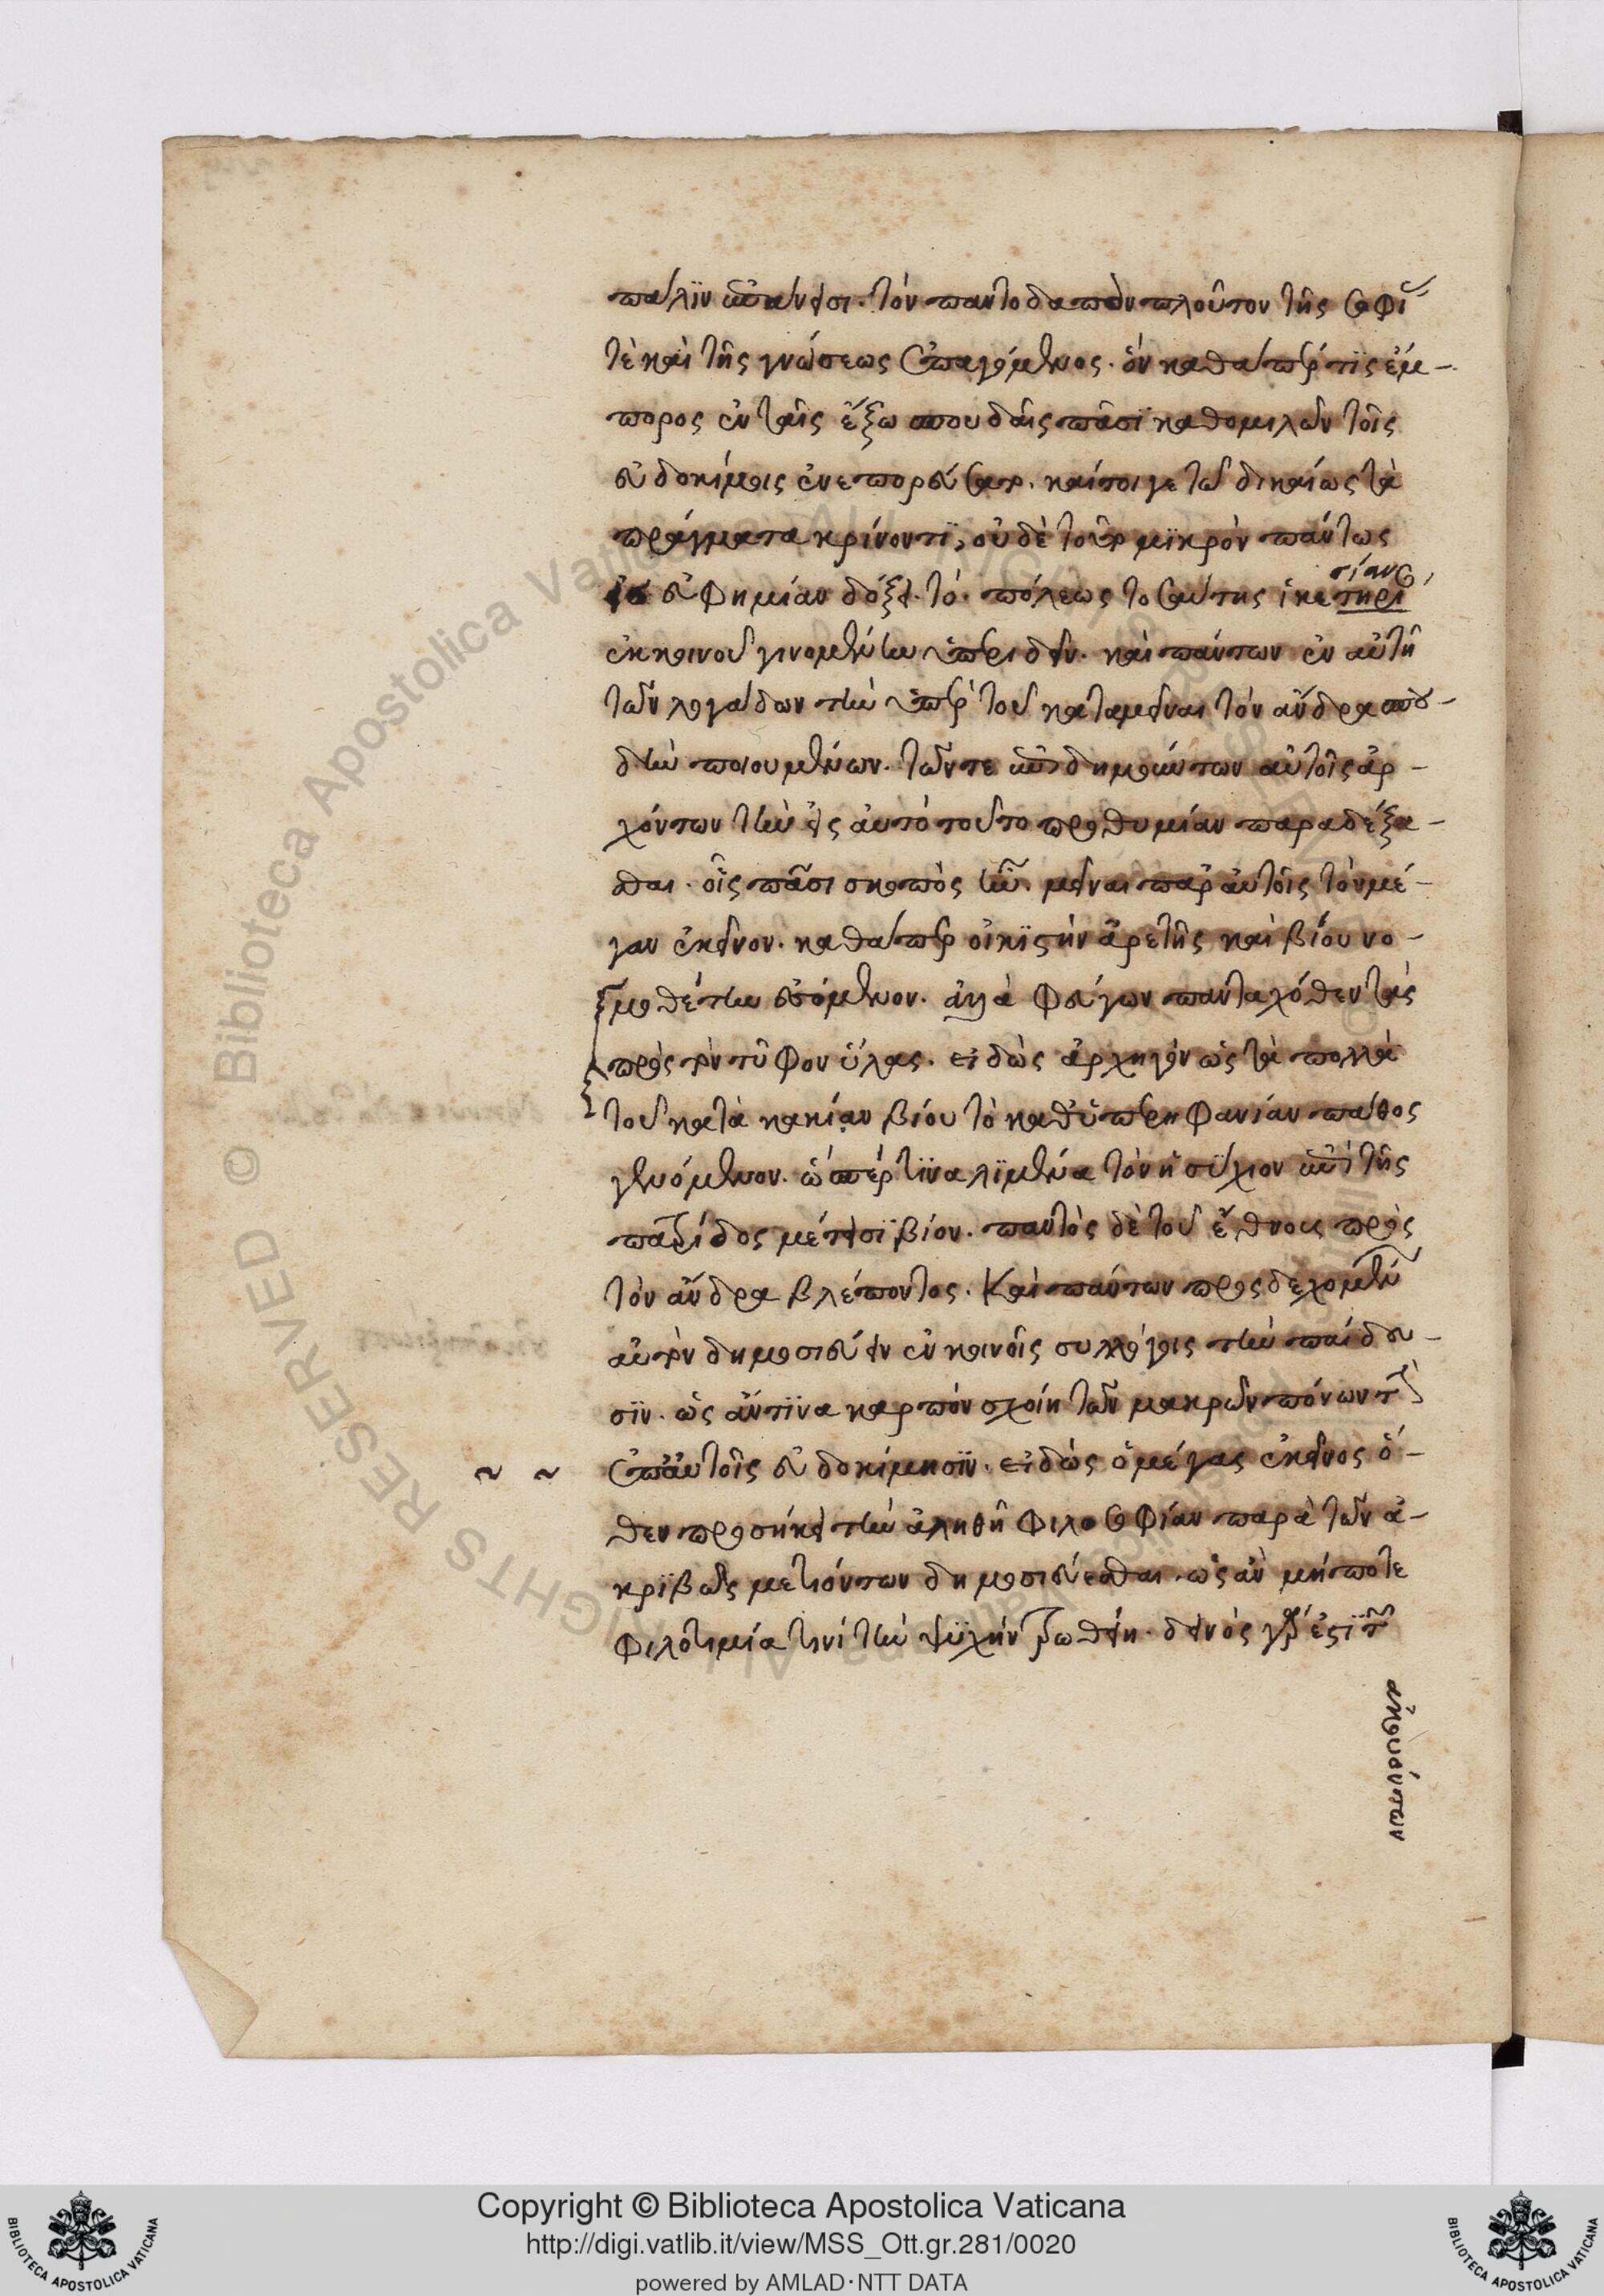 πάλϊν ἐπάνεισι. τὸν παντοδαπὸν πλοῦτον τῆς σοφί
τὲ καὶ τῆς γνώσεως ἐπαγόμενος. ὃν καθάπέρ τϊς ἔμ-
πορος ἐν ταῖς ἔξω σπουδαῖς πᾶσϊ καθομιλῶν τοῖς
εὐδοκίμοις ἐνεπορεύσατο. καίτοιγε τῶ δικαίως τὰ
πράγματα κρίνοντϊ, οὐδὲ τοῦτο μϊκρὸν πάντως
εἰς εὐφημίαν δόξει. τὸ πόλεως τοσαύτης ἱκετηρί
σίας
ἐκ κοινοῦ γινομένην ὑπεριδεῖν. καὶ πάντων ἐν αὐτῆ
τῶν λογάδων τὴν ὑπὲρ τοῦ καταμεῖναι τὸν ἄνδρα σπου-
δὴν ποιουμένων. τῶντε ἐπιδημούντων αὐτοῖς ἀρ-
χόντων τὴν εἰς αὐτὸ τοῦτο προθυμίαν παραδέξα-
σθαι. οἷς πᾶσι σκοπὸς ἦν. μεῖναι παρ αὐτοῖς τὸν μέ-
γαν ἐκεῖνον. καθάπερ οἰκϊστὴν ἀρετῆς καὶ βίου νο-
μοθέτην ἐσόμενον. ἀλλὰ φεύγων πανταχόθεν τὰς
πρὸς τὸν τῦφον ὕλας. εἰδὼς ἀρχηγὸν ὡς τὰ πολλὰ
τοῦ κατὰ κακίαν βίου τὸ καθ ὑπερηφανίαν πάθος
γενόμενον. ὥσπέρ τϊνα λϊμένα τὸν ἡσύχιον ἐπὶ τῆς
πατρίδος μέτεισϊ βίον. παντὸς δὲ τοῦ ἔθνους πρὸς
τὸν ἄνδρα βλέποντος. καὶ πάντων προσδεχομέν
αὐτὸν δημοσιεύειν ἐν κοινοῖς συλλόγοις τὴν παίδευ-
σϊν. ὡς ἄν τϊνα καρπὸν σχοίη τῶν μακρῶν πόνων τ
ἐπ αὐτοῖς εὐδοκίμησϊν. εἰδὼς ὁ μέγας ἐκεῖνος ὅ-
θεν προσήκει τὴν ἀληθῆ φιλοσοφίαν παρὰ τῶν ἀ-
κρϊβῶς μετιόντων δημοσιεύεσθαι. ὡς ἂν μήποτε
φιλοτιμία τινὶ τὴν ψϋχὴν τρωθείη. δεινὸς γάρ ἐστϊ τ
ἀκουσάντων
Copyright © Biblioteca Apostolica Vaticana
http://digi.vatlib.it/view/MSS_Ott.gr.281/0020
powered by AMLAD·NTT DATA